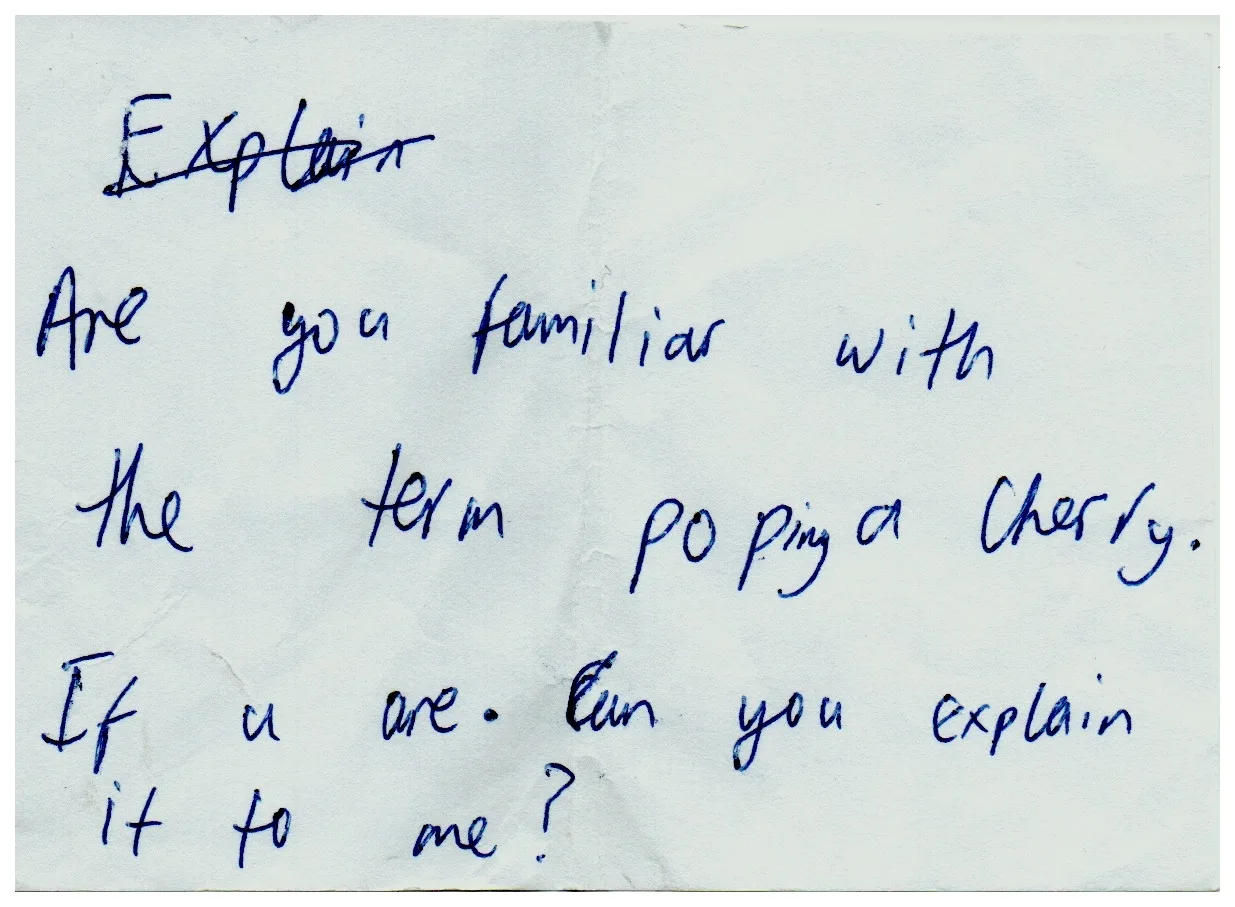 Explain
Are you familiar with
the term poping a Cherry.
If u are. Can you explain
it to me?